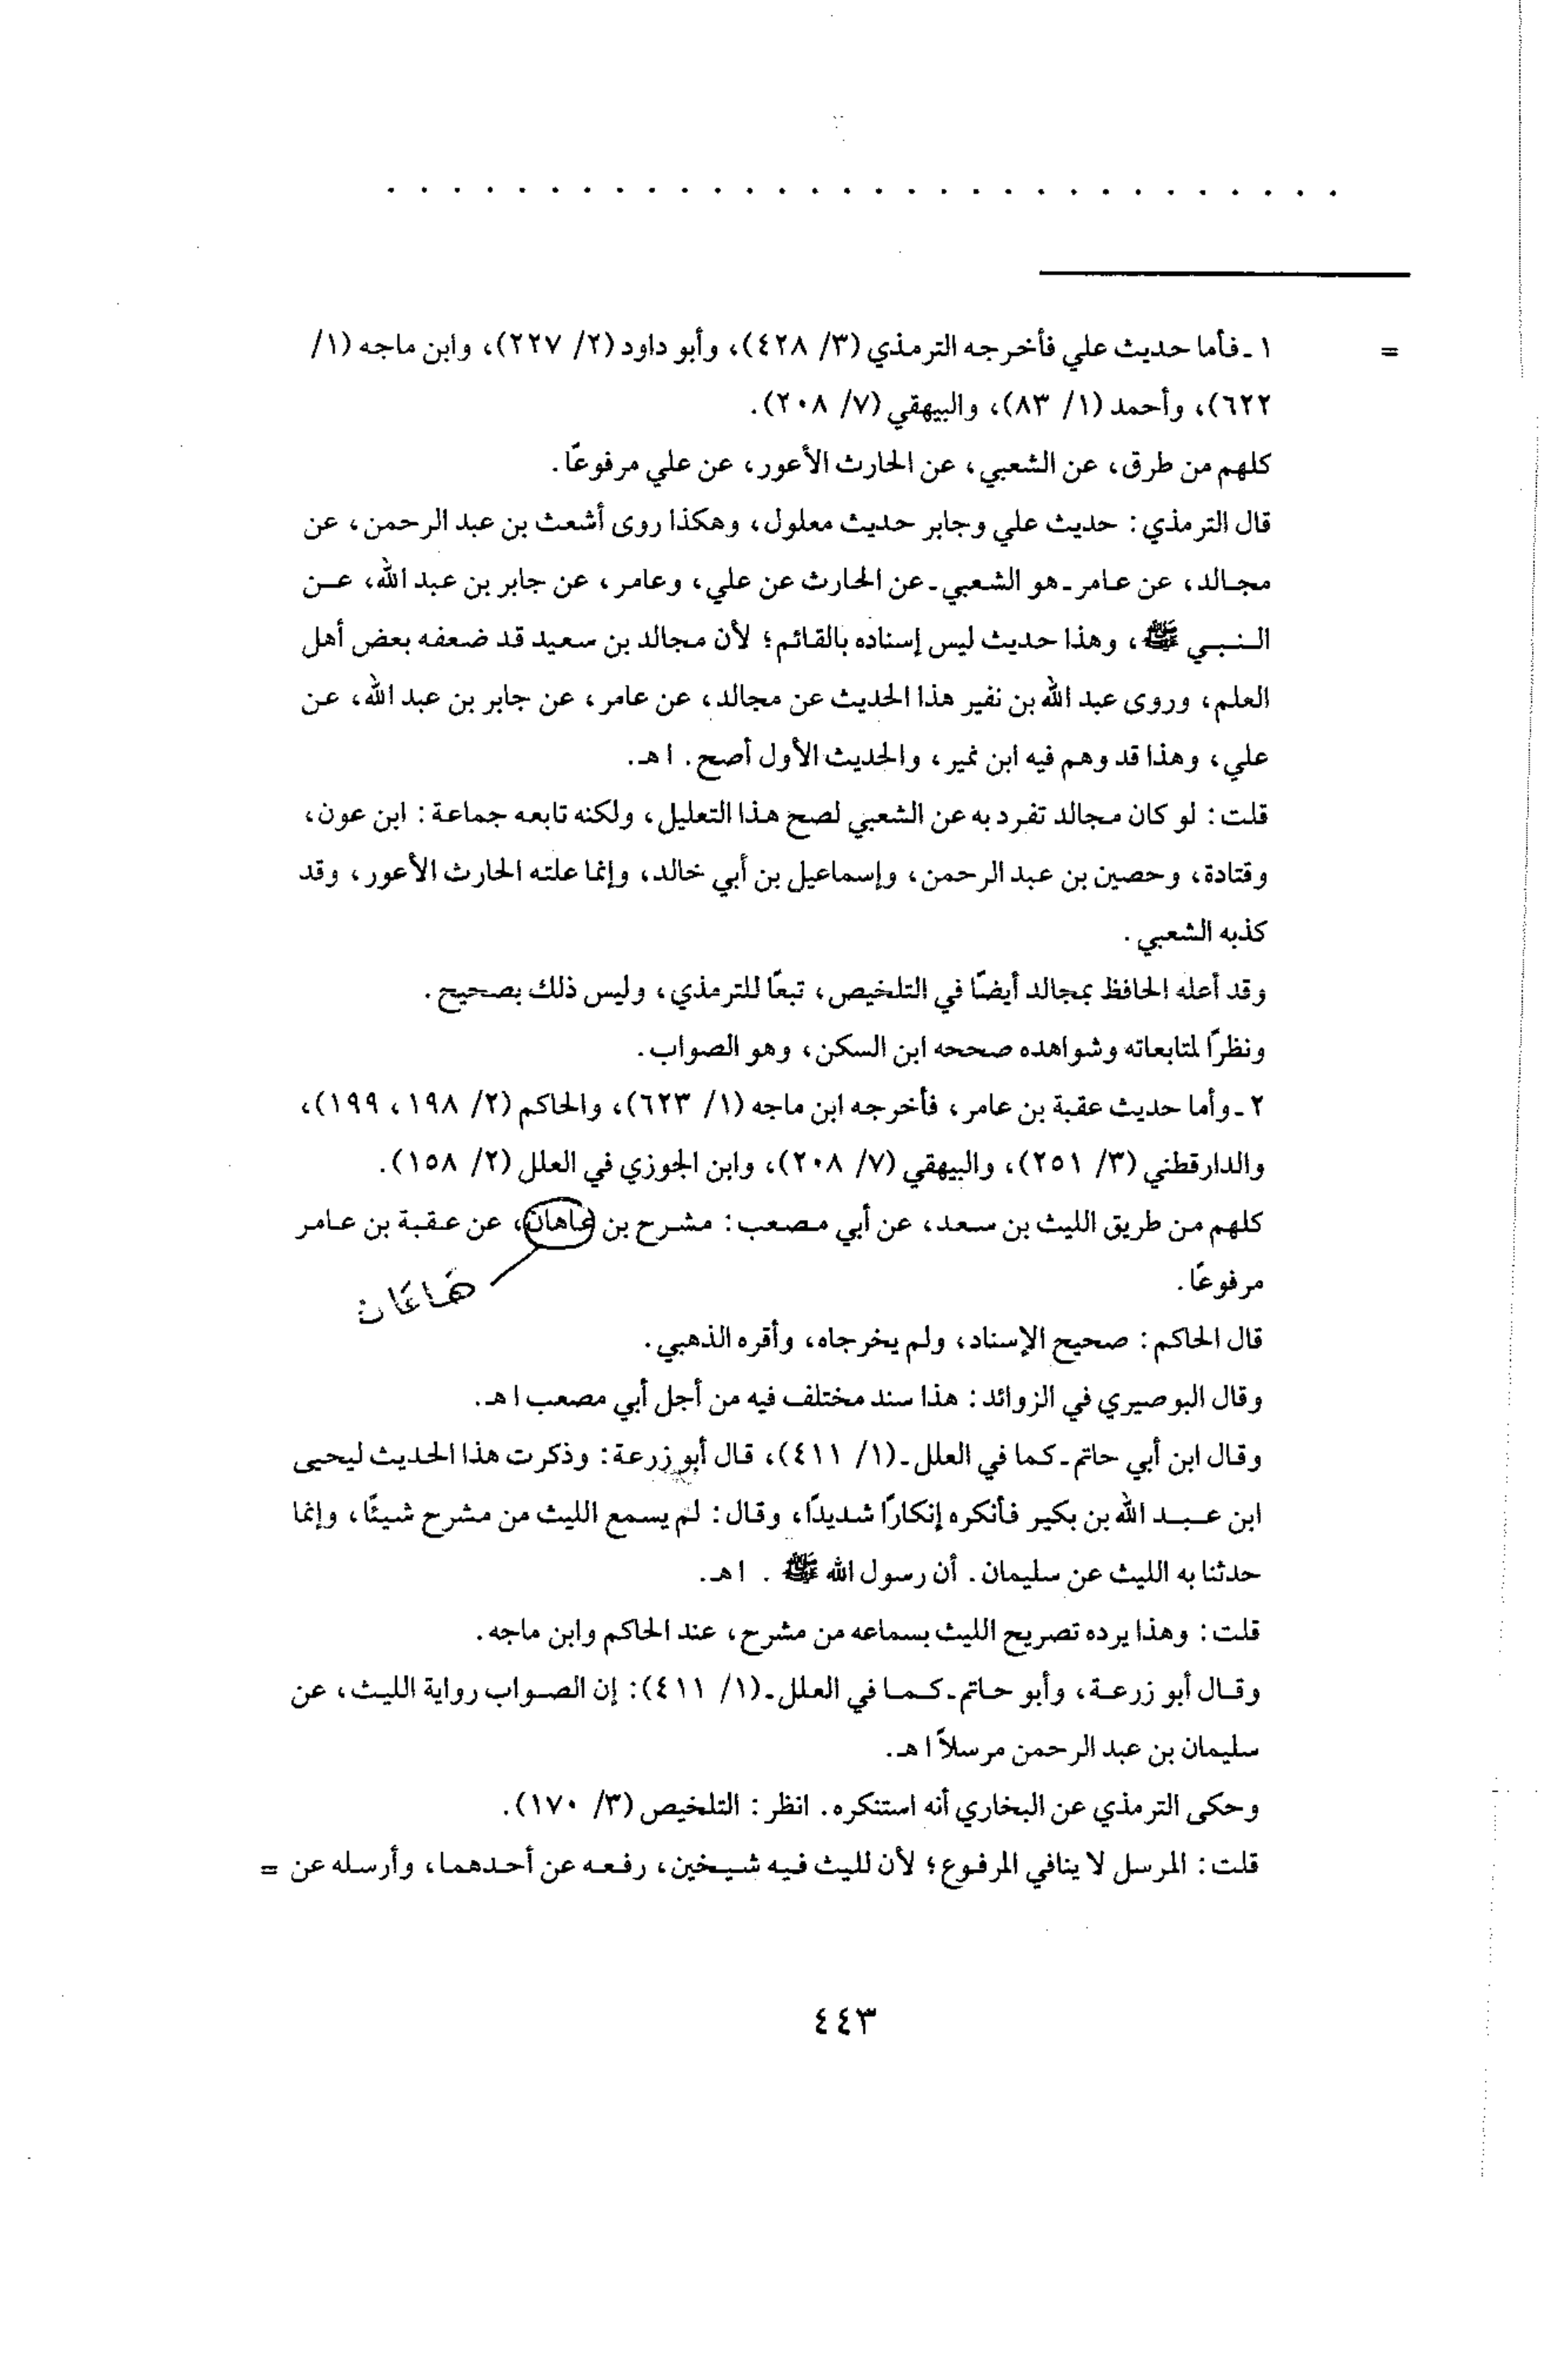 = ١ ـ فأما حديث علي فأخرجه الترمذي (٣/ ٤٢٨)، وأبو داود (٢/ ٢٢٧)، وابن ماجه (١/
٦٢٢)، وأحمد (١/ ٨٣)، والبيهقي (٧/ ٢٠٨).
كلهم من طرق، عن الشعبي، عن الحارث الأعور، عن علي مرفوعًا.
قال الترمذي: حديث علي وجابر حديث معلول، وهكذا روى أشعث بن عبد الرحمن، عن
مجالد، عن عامر ـ هو الشعبي ـ عن الحارث عن علي، وعامر، عن جابر بن عبد الله، عن
النبي ﷺ، وهذا حديث ليس إسناده بالقائم؛ لأن مجالد بن سعيد قد ضعفه بعض أهل
العلم، وروى عبد الله بن نفير هذا الحديث عن مجالد، عن عامر، عن جابر بن عبد الله، عن
علي، وهذا قد وهم فيه ابن نمير، والحديث الأول أصح. ا هـ.
قلت: لو كان مجالد تفرد به عن الشعبي لصح هذا التعليل، ولكنه تابعه جماعة: ابن عون،
وقتادة، وحصين بن عبد الرحمن، وإسماعيل بن أبي خالد، وإنما علته الحارث الأعور، وقد
كذبه الشعبي.
وقد أعله الحافظ بمجالد أيضًا في التلخيص، تبعًا للترمذي، وليس ذلك بصحيح.
ونظرًا لمتابعاته وشواهده صححه ابن السكن، وهو الصواب.
٢ ـ وأما حديث عقبة بن عامر، فأخرجه ابن ماجه (١/ ٦٢٣)، والحاكم (٢/ ١٩٨، ١٩٩)،
والدارقطني (٣/ ٢٥١)، والبيهقي (٧/ ٢٠٨)، وابن الجوزي في العلل (٢/ ١٥٨).
كلهم من طريق الليث بن سعد، عن أبي مصعب: مشرح بن عاهان، عن عقبة بن عامر
مرفوعًا.
هَاعَان
قال الحاكم: صحيح الإسناد، ولم يخرجاه، وأقره الذهبي.
وقال البوصيري في الزوائد: هذا سند مختلف فيه من أجل أبي مصعب ا هـ.
وقال ابن أبي حاتم ـ كما في العلل ـ (١/ ٤١١)، قال أبو زرعة: وذكرت هذا الحديث ليحيى
ابن عبد الله بن بكير فأنكره إنكارًا شديدًا، وقال: لم يسمع الليث من مشرح شيئًا، وإنما
حدثنا به الليث عن سليمان. أن رسول الله ﷺ . ا هـ.
قلت: وهذا يرده تصريح الليث بسماعه من مشرح، عند الحاكم وابن ماجه.
وقال أبو زرعة، وأبو حاتم ـ كما في العلل ـ (١/ ٤١١): إن الصواب رواية الليث، عن
سليمان بن عبد الرحمن مرسلاً ا هـ.
وحكى الترمذي عن البخاري أنه استنكره. انظر: التلخيص (٣/ ١٧٠).
قلت: المرسل لا ينافي المرفوع؛ لأن لليث فيه شيخين، رفعه عن أحدهما، وأرسله عن =
٤٤٣